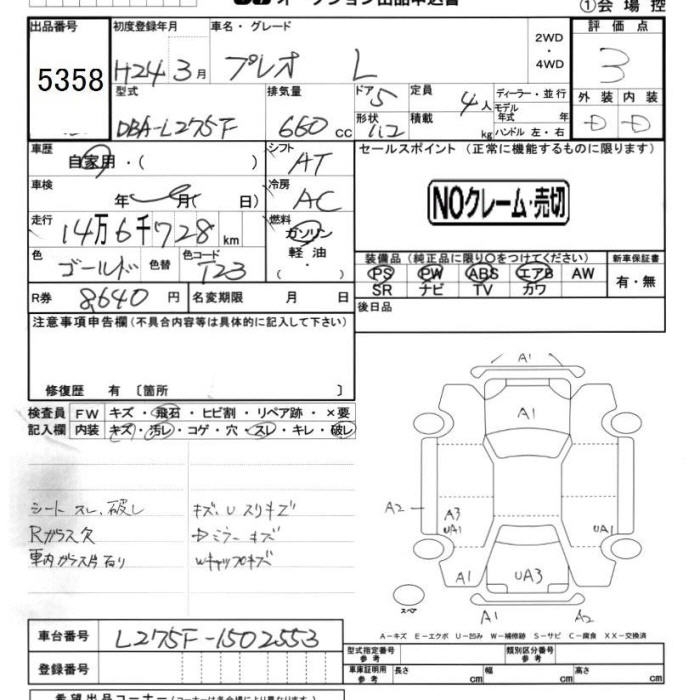 オークション出品申込書
①会場控
出品番号
5358
初度登録年月
H24 3月
車名・グレード
プレオ L
2WD
・
4WD
評価点
3
型式
DBA-L275F
排気量
660 cc
ドア 5
形状
定員
4人
積載
kg
ディーラー・並行
モデル年式 年
ハンドル 左・右
外装 内装
D D
車歴
自家用・( )
シフト
AT
セールスポイント (正常に機能するものに限ります)
車検
年 月( 日)
冷房
AC
NOクレーム・売切
走行
14万6千728km
燃料
ガソリン
軽油
( )
色
ゴールド
色替
色コード
T23
装備品 (純正品に限り○をつけてください)
PS PW ABS エアB AW
SR ナビ TV カワ
新車保証書
有・無
R券 8640円
名変期限 月 日
後日品
注意事項申告欄(不具合内容等は具体的に記入して下さい)
修復歴 有 〔箇所 〕
検査員
記入欄
FW キズ・飛石・ヒビ割・リペア跡・×要
内装 キズ・汚レ・コゲ・穴・スレ・キレ・破レ
シート スレ、破レ
Rガラス欠
車内ガラス片有り
キズ、U スリキズ
中ミラー キズ
Wキャップキズ
A1
A1
A2
A3
UA1
UA1
A1
UA3
A1
A2
スペア
A－キズ E－エクボ U－凹み W－補修跡 S－サビ C－腐食 XX－交換済
車台番号
L275F-1502553
登録番号
型式指定番号
参考
類別区分番号
参考
車庫証明用
参考
長さ cm
幅 cm
高さ cm
希望出品コーナー